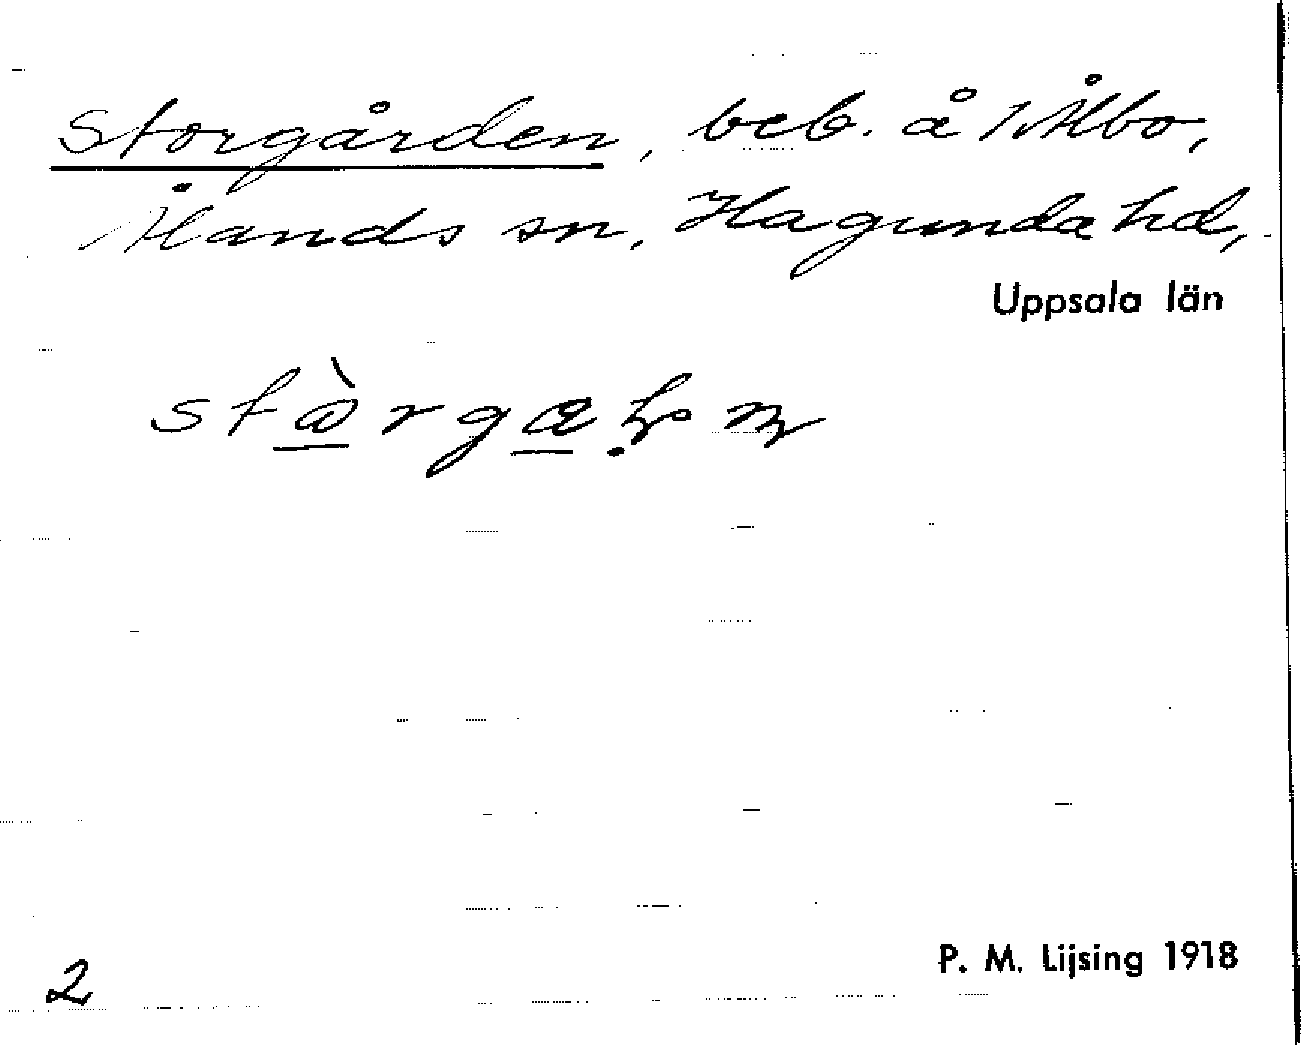 Storgården, beb. å Ålbo,
Ålands sn, Hagunda hd,
Uppsala län
2
P. M. Lijsing 1918